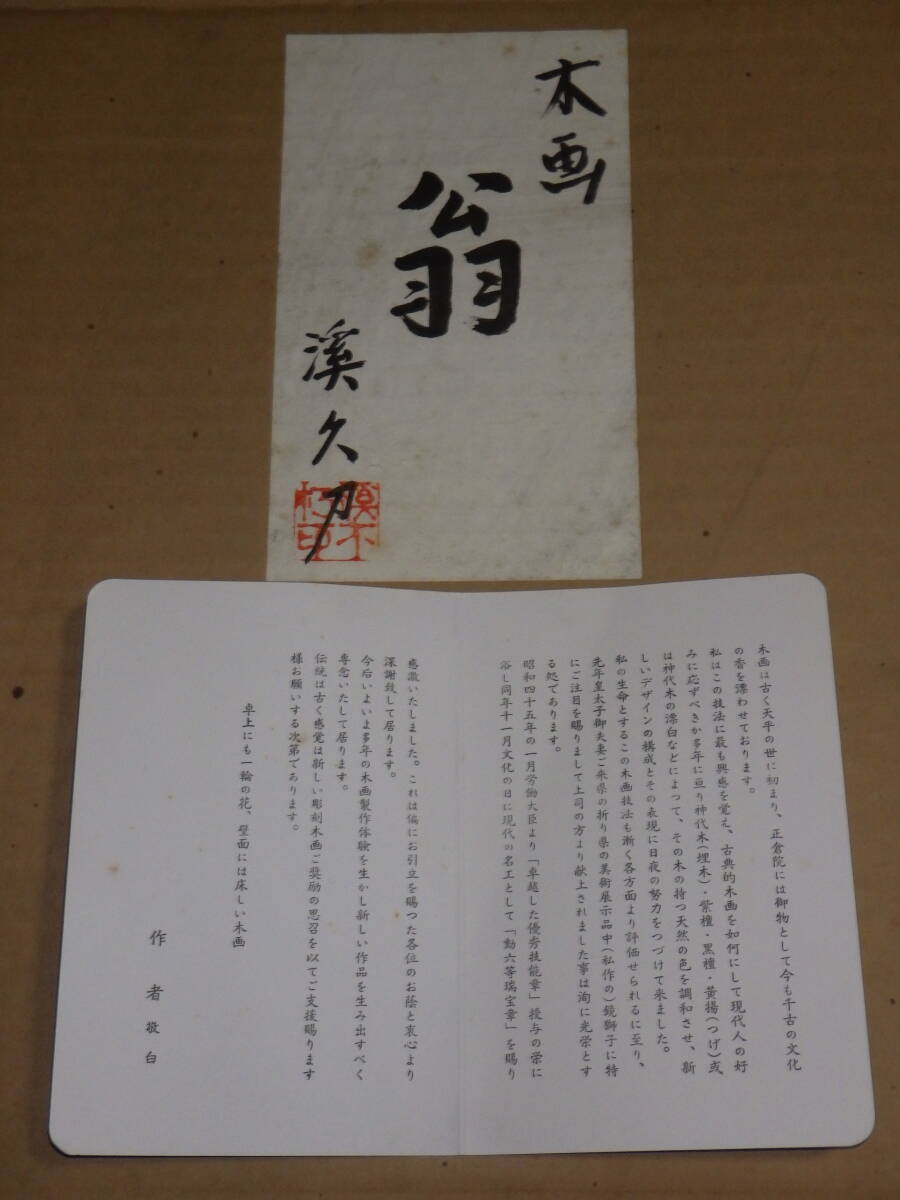 木画
翁
溪久刀
木画は古く天平の世に初まり、正倉院には御物として今も千古の文化
の香を漂わせております。
私はこの技法に最も興感を覚え、古典的木画を如何にして現代人の好
みに応ずべきか多年に亘り神代木(埋木)・紫檀・黒檀・黄揚(つげ)或
は神代木の漂白などによつて、その木の持つ天然の色を調和させ、新
しいデザインの構成とその表現に日夜の努力をつづけて来ました。
私の生命とするこの木画技法も漸く各方面より評価せられるに至り、
先年皇太子御夫妻ご来県の折り県の美術展示品中(私作の)鏡獅子に特
にご注目を賜りまして上司の方より献上されました事は洵に光栄とす
る処であります。
昭和四十五年の一月労働大臣より「卓越した優秀技能章」授与の栄に
浴し同年十一月文化の日に現代の名工として「勳六等瑞宝章」を賜り
感激いたしました。これは偏にお引立を賜つた各位のお蔭と衷心より
深謝致して居ります。
今后いよいよ多年の木画製作体験を生かし新しい作品を生み出すべく
専念いたして居ります。
伝統は古く感覚は新しい彫刻木画ご奨励の思召を以てご支援賜ります
様お願いする次第であります。
卓上にも一輪の花、壁面には床しい木画
作者敬白